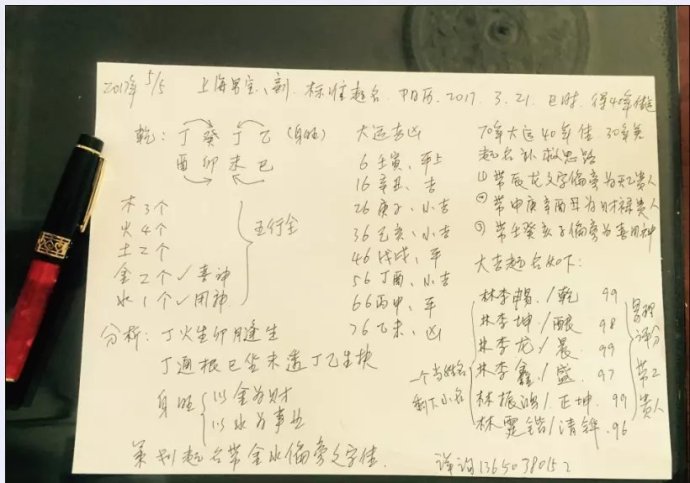 2017年5/5 上海男宝、标准起名 阳历.2017.3.21.巳时.
乾：丁癸丁乙（身旺）
酉卯未巳
木3个
火4个
土2个
金2个✓喜神
水1个✓用神
五行全
分析：丁火生卯月逢生
丁通根巳坐未透丁乙生扶
身旺
以金为财
以水为事业
策划起名带金水偏旁文字佳.
大运吉凶
6壬寅、平
16辛丑、吉
26庚子、小吉
36己亥、小吉
46戊戌、平
56丁酉、小吉
66丙申、平
76乙未、凶
70年大运40年佳.30年失
起名补救思路
①带辰龙文字偏旁为天乙贵人
②带申庚辛酉丑为财禄贵人
③带壬癸亥子偏旁为喜用神
大吉起名如下：
林李畅./乾 99
林李坤/ 98
林李龙/晨 99
林李鑫./盛 97
林振鸿/.正坤.99
林霆锴/清铧.96
一个当姓名
剩下小名
易理
评分
带2
贵人
详询13650380152